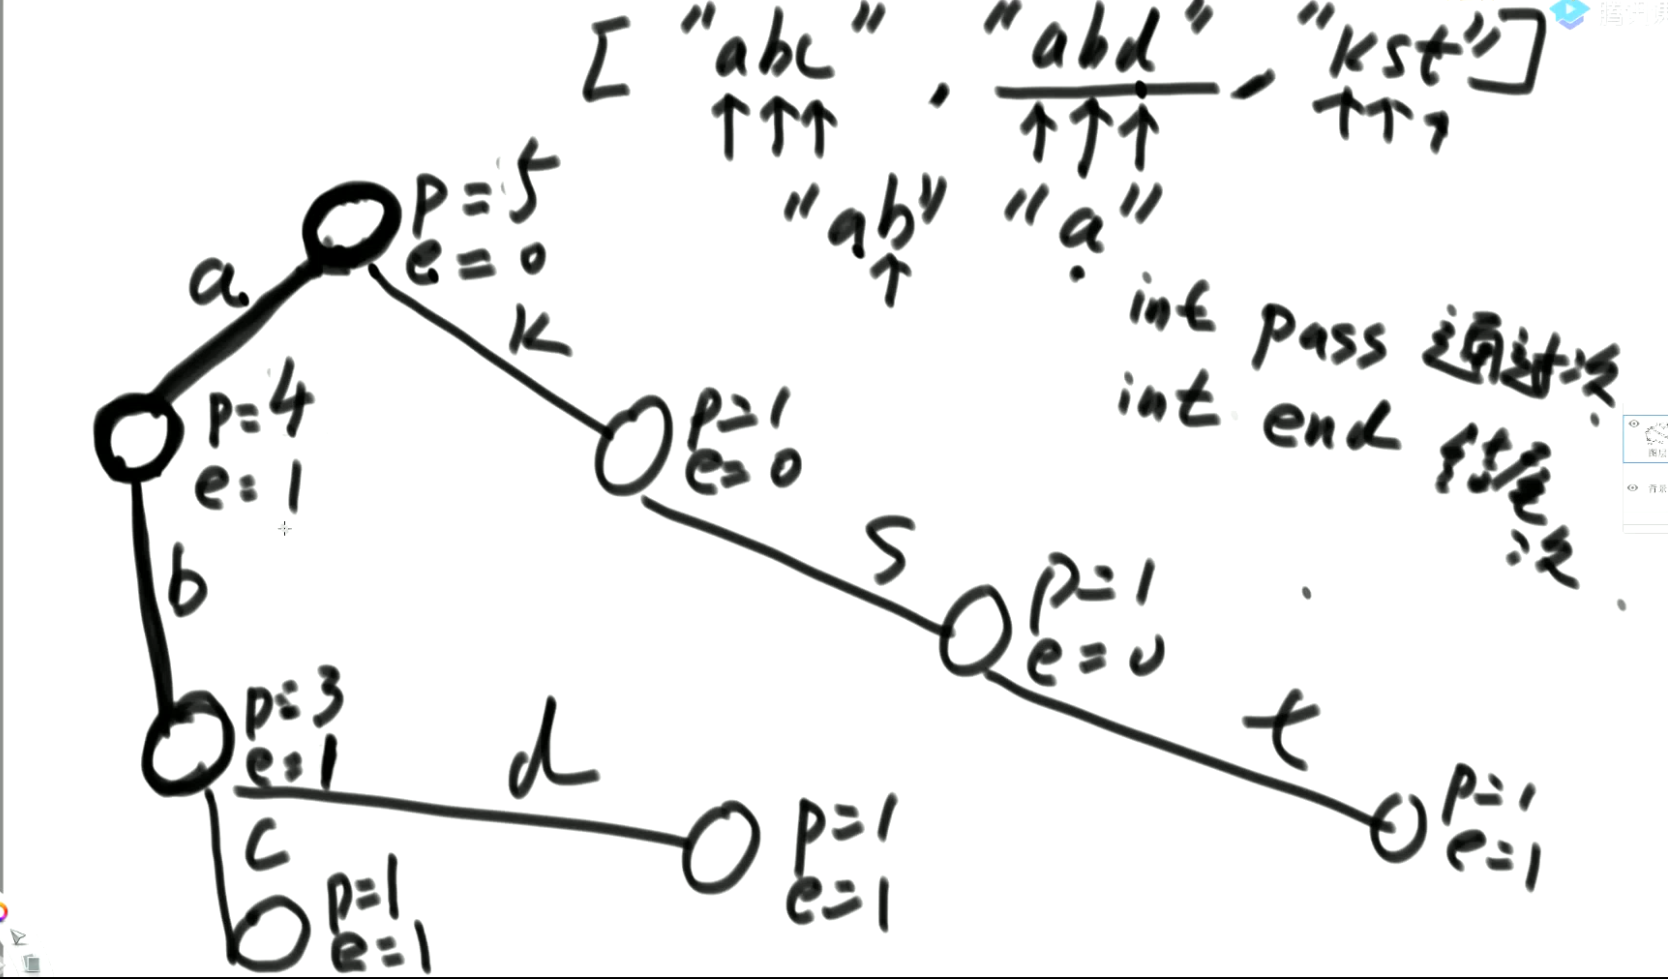 ["abc", "abd", "kst"]
"ab" "a"
int pass 通过次
int end 结尾次
p=5
e=0
a
k
p=4
e=1
p=1
e=0
b
s
p=1
e=0
p=3
e=1
d
t
c
p=1
e=1
p=1
e=1
p=1
e=1